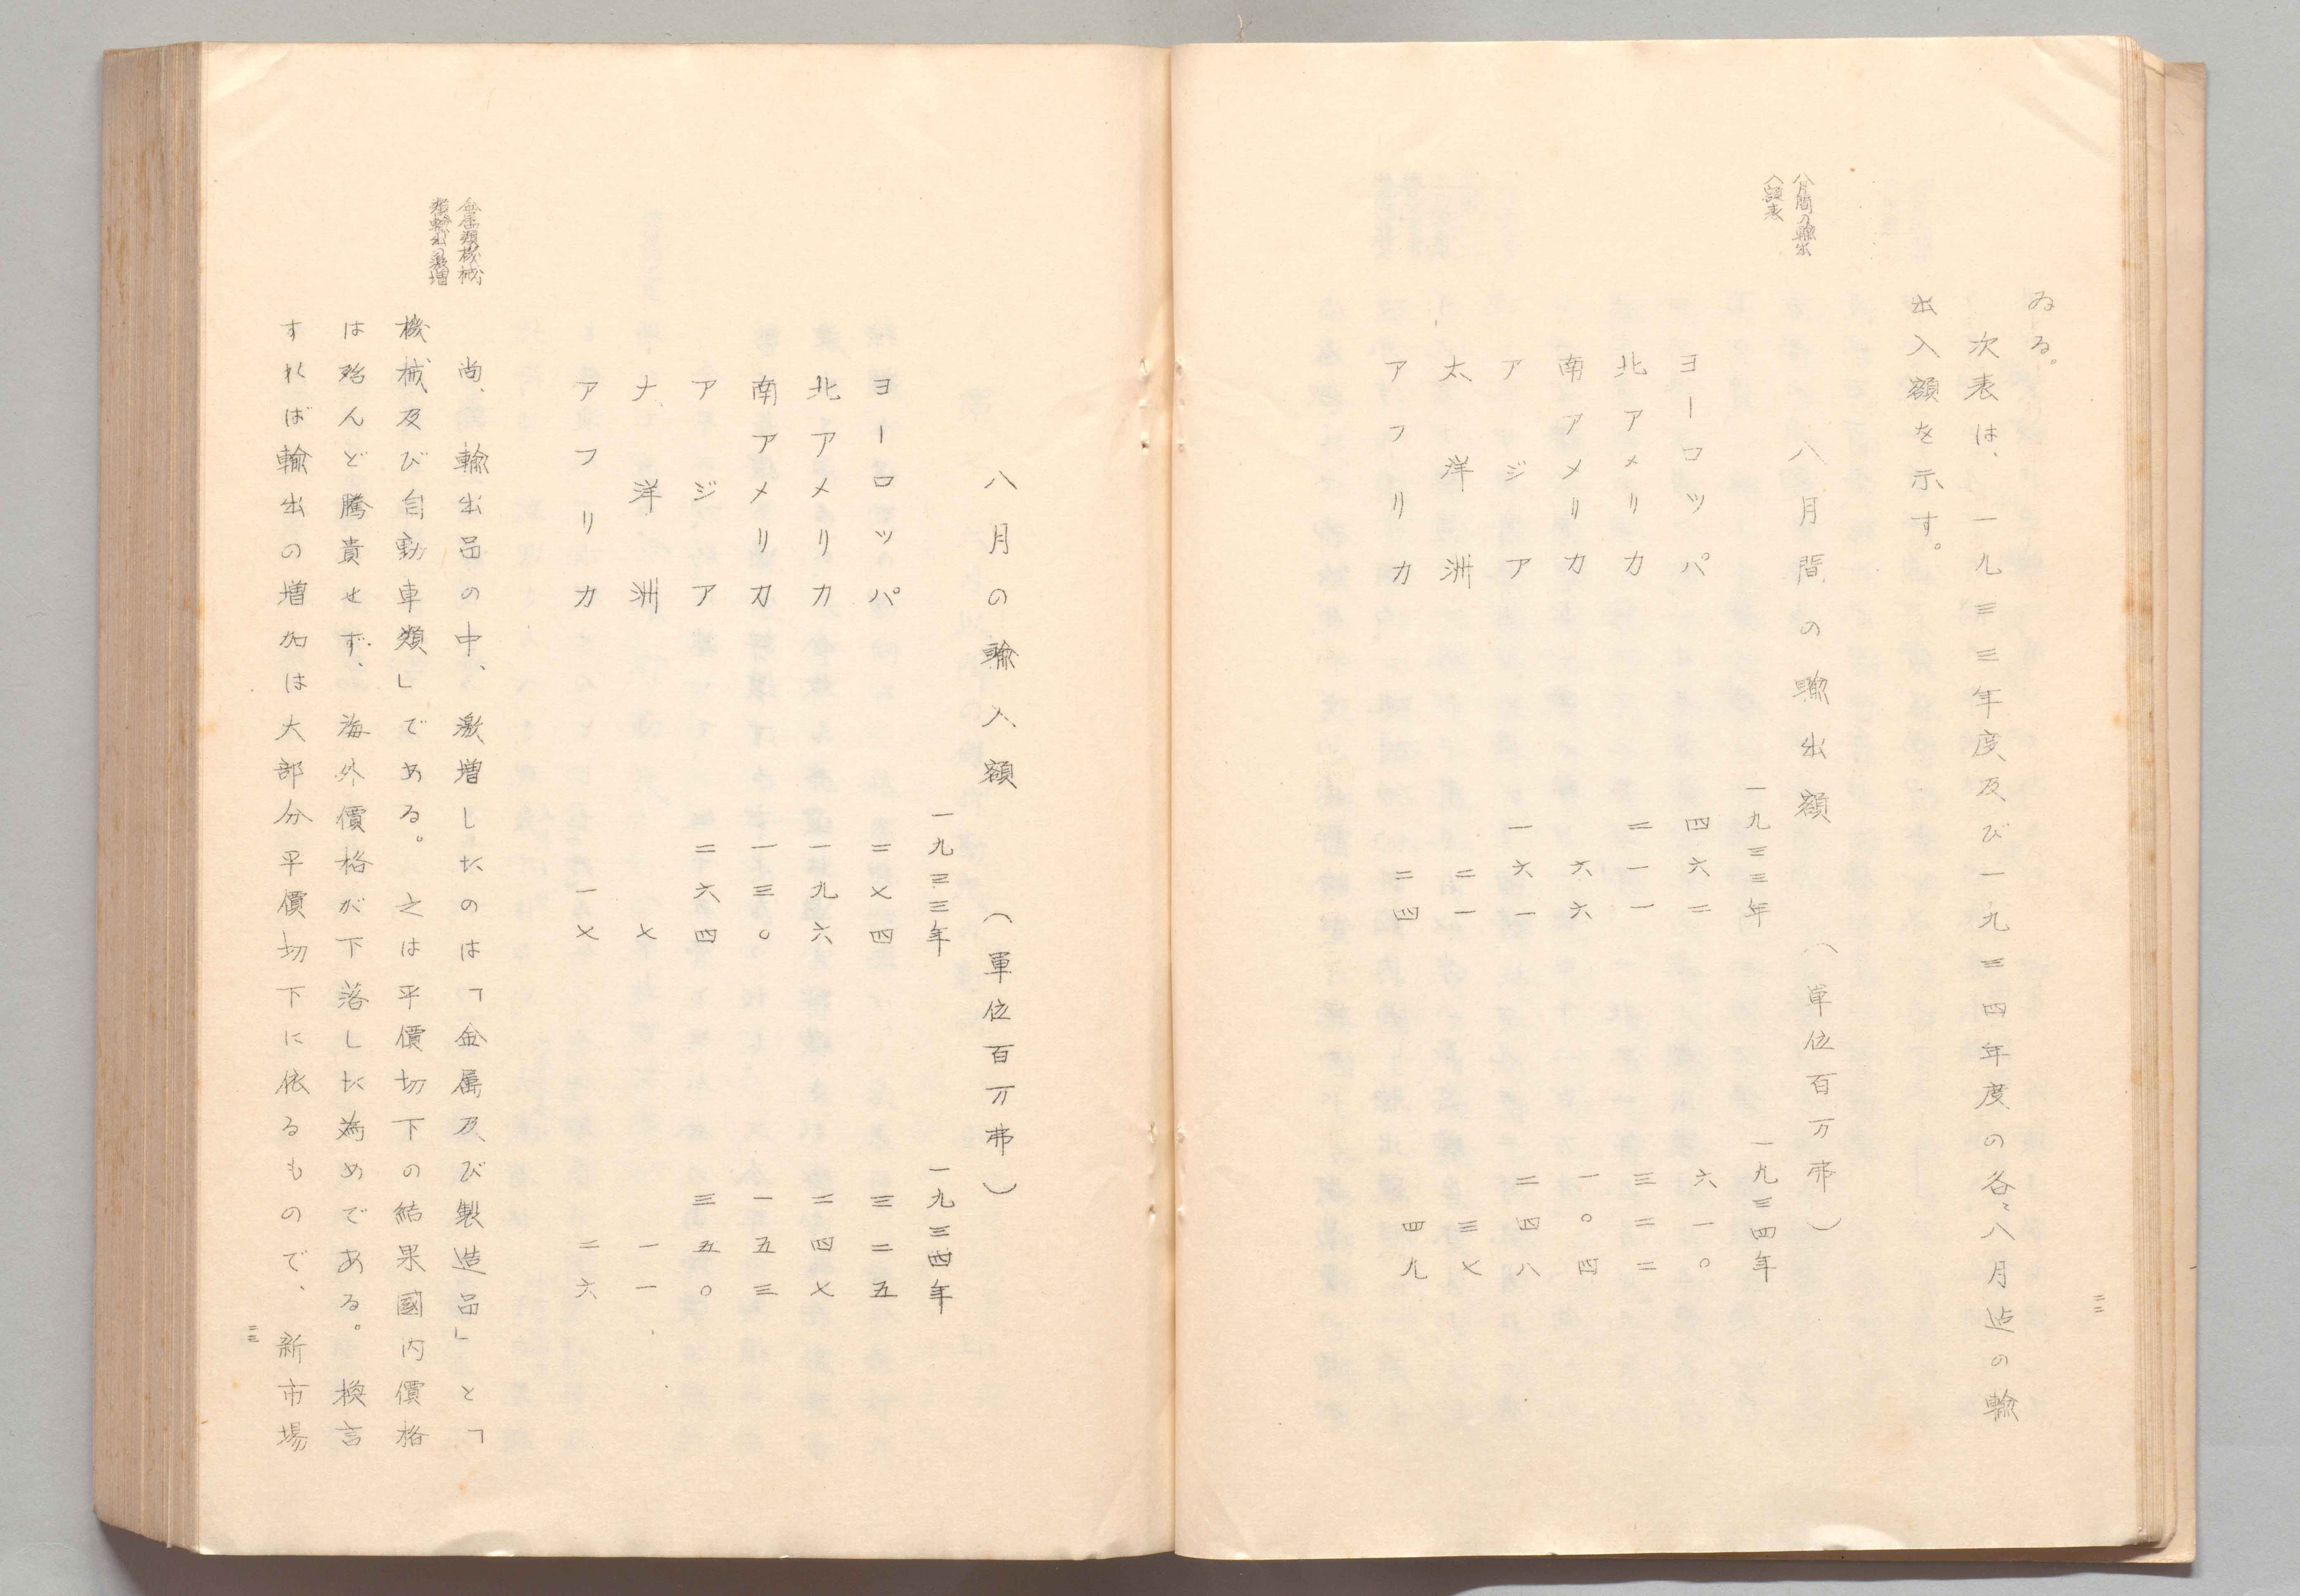 八月間の輸出
入額表
ゐる。
次表は、一九三三年度及び一九三四年度の各〻八月迠の輸
出入額を示す。
八月間の輸出額 (單位百万弗)
一九三三年 一九三四年
ヨーロッパ 四六二 六一〇
北アメリカ 二一一 三二二
南アメリカ 六六 一〇四
アジア 一六一 二四八
太洋洲 二一 三七
アフリカ 二四 四九
二二
八月の輸入額 (單位百万弗)
一九三三年 一九三四年
ヨーロッパ 二七四 三二五
北アメリカ 一九六 二四七
南アメリカ 一三〇 一五三
アジア 二六四 三五〇
大洋洲 七 一一
アフリカ 一七 二六
金属類機械
類輸出の激増
尚、輸出品の中、激増したのは「金属及び製造品」と「
機械及び自動車類」である。之は平價切下の結果國内價格
は殆んど騰貴せず、海外價格が下落した為めである。換言
すれば輸出の増加は大部分平價切下に依るもので、新市場
二三